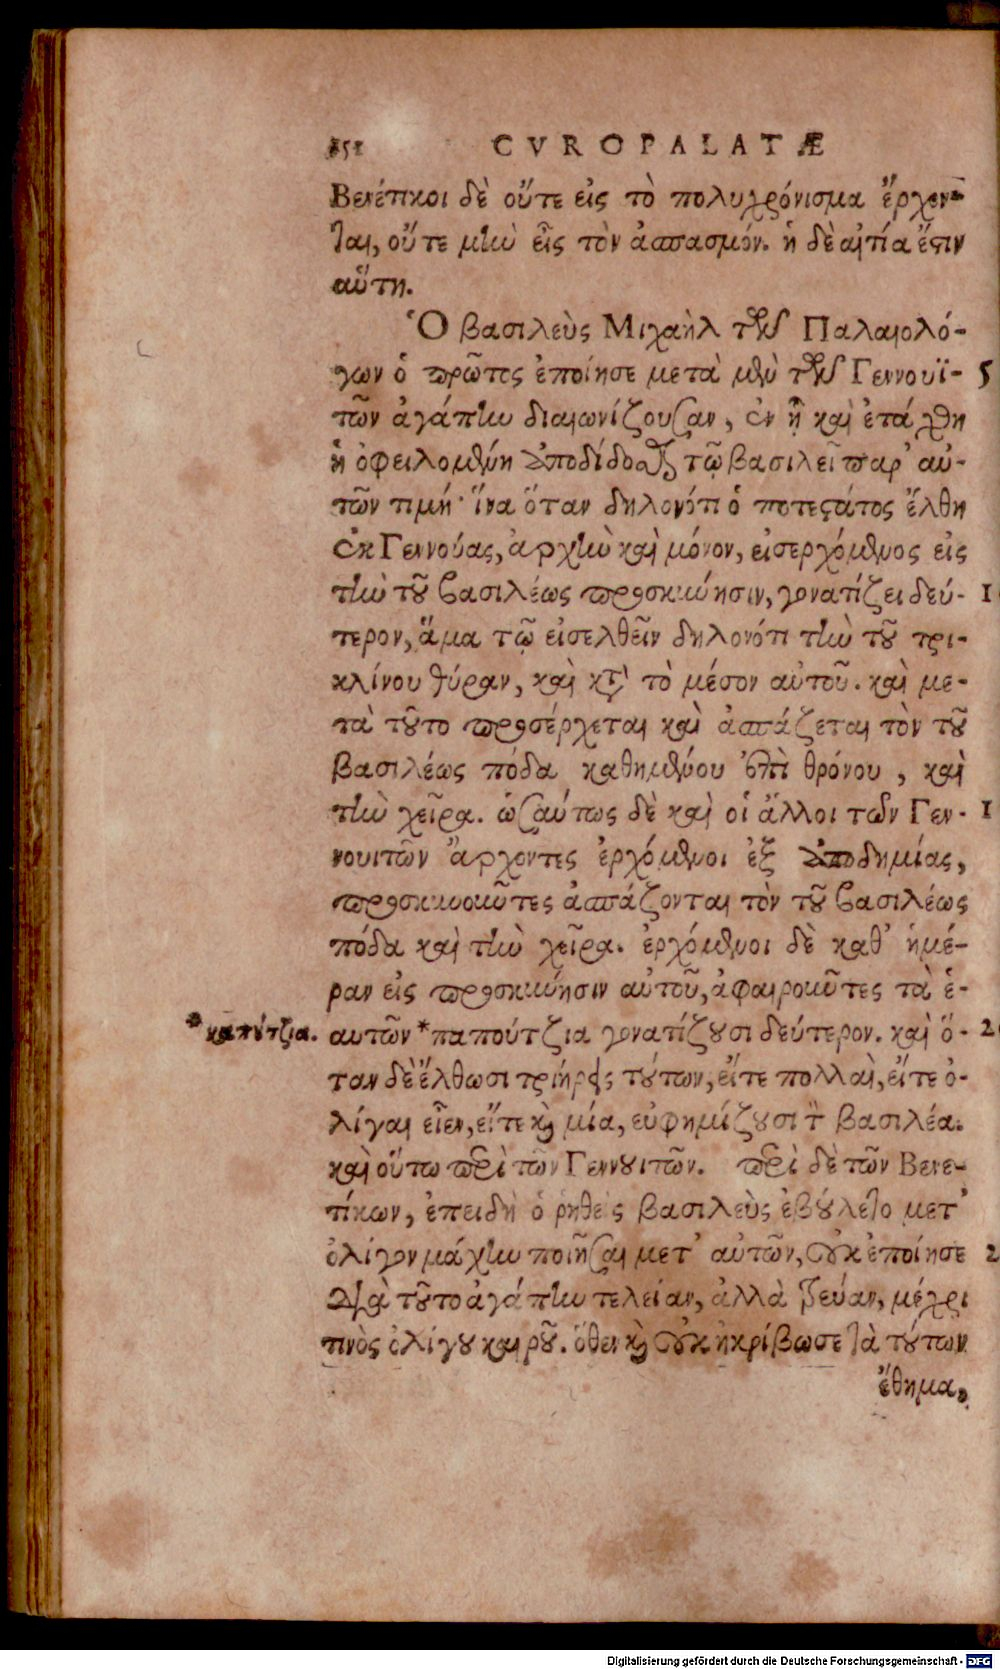 151 CVROPALATÆ
Βενέτικοι δὲ οὔτε εἰς τὸ πολυχρόνισμα ἔρχον-
ται, οὔτε μὴν εἰς τὸν ἀσπασμόν. ἡ δὲ αἰτία ἔστιν
αὕτη.
Ὁ βασιλεὺς Μιχαὴλ τῶν Παλαιολό-
γων ὁ πρῶτος ἐποίησε μετὰ μὲν τῶν Γεννουϊ- 5
τῶν ἀγάπην διαιωνίζουσαν, ἐν ᾗ καὶ ἐτάχθη
ἡ ὀφειλομένη ἀποδίδοσθαι τῷ βασιλεῖ παρ' αὐ-
τῶν τιμή· ἵνα ὅταν δηλονότι ὁ ποτεστάτος ἔλθη
ἐκ Γεννούας, ἀρχὴν καὶ μόνον, εἰσερχόμενος εἰς
τὴν τοῦ βασιλέως προσκύνησιν, γονατίζει δεύ- 1
τερον, ἅμα τῷ εἰσελθεῖν δηλονότι τὴν τοῦ τρι-
κλίνου θύραν, καὶ κατὰ τὸ μέσον αὐτοῦ. καὶ με-
τὰ τοῦτο προσέρχεται καὶ ἀσπάζεται τὸν τοῦ
βασιλέως πόδα καθημένου ἐπὶ θρόνου, καὶ
τὴν χεῖρα. ὡσαύτως δὲ καὶ οἱ ἄλλοι τῶν Γεν- 1
νουιτῶν ἄρχοντες ἐρχόμενοι ἐξ ἀποδημίας,
προσκυνοῦντες ἀσπάζονται τὸν τοῦ βασιλέως
πόδα καὶ τὴν χεῖρα. ἐρχόμενοι δὲ καθ' ἡμέ-
ραν εἰς προσκύνησιν αὐτοῦ, ἀφαιροῦντες τὰ ἑ-
* καπούτζια. αυτῶν * παπούτζια γονατίζουσι δεύτερον. καὶ ὅ- 2
ταν δὲ ἔλθωσι τριήρεις τούτων, εἴτε πολλαὶ, εἴτε ὀ-
λίγαι εἶεν, εἴτε καὶ μία, εὐφημίζουσι τὸν βασιλέα.
καὶ οὕτω περὶ τῶν Γεννουιτῶν. περὶ δὲ τῶν Βενε-
τίκων, ἐπειδὴ ὁ ῥηθεὶς βασιλεὺς ἐβούλετο μετ'
ὀλίγον μάχην ποιῆσαι μετ' αὐτῶν, οὐκ ἐποίησε 2
διὰ τοῦτο ἀγάπην τελείαν, ἀλλὰ τρεύαν, μέχρι
τινὸς ὀλίγου καιροῦ. ὅθεν καὶ οὐκ ἠκρίβωσε τὰ τούτων
ἔθημα,
Digitalisierung gefördert durch die Deutsche Forschungsgemeinschaft - DFG